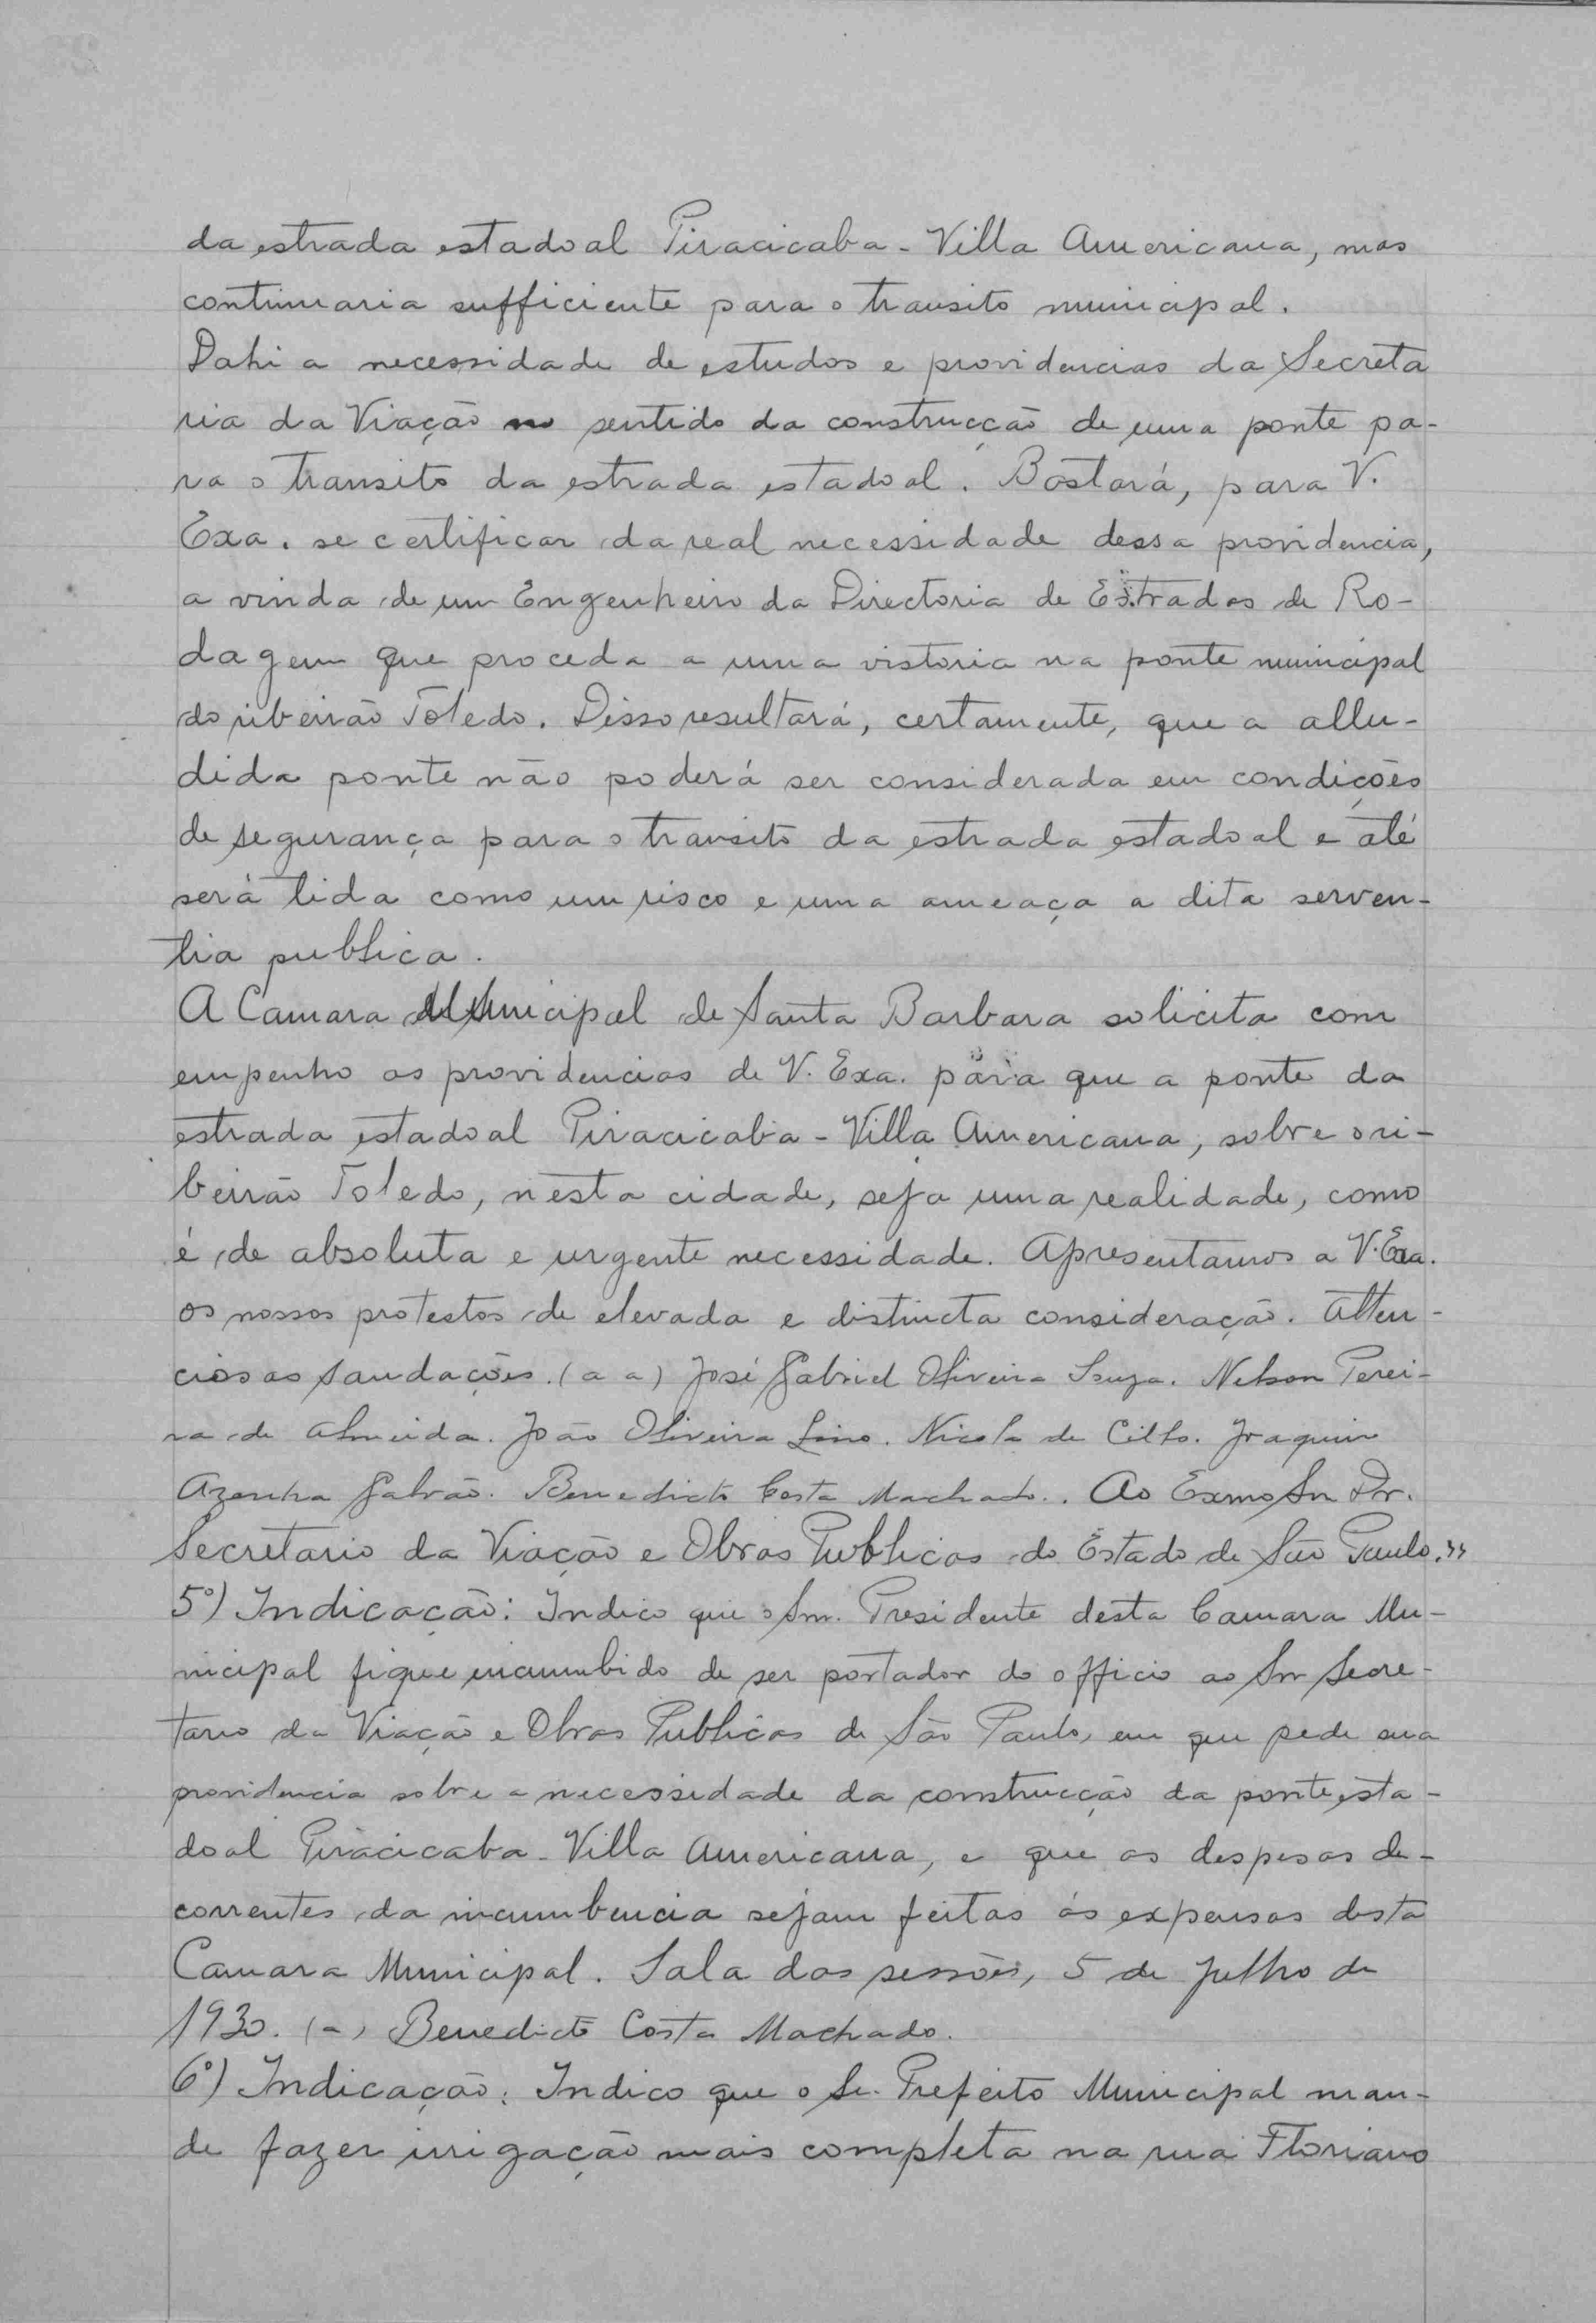 da estrada estadoal Piracicaba - Villa Americana, mas
continuaria sufficiente para o transito municipal.
Dahi a necessidade de estudos e providencias da Secreta
ria da Viação no sentido da construcção de uma ponte pa-
ra o transito da estrada estadoal. Bastará, para V.
Exa. se certificar da real necessidade dessa providencia,
a vinda de um Engenheiro da Directoria de Estradas de Ro-
dagem que proceda a uma vistoria na ponte municipal
do ribeirão Toledo. Disso resultará, certamente, que a allu-
dida ponte não poderá ser considerada em condições
de segurança para o transito da estrada estadoal e até
será tida como um risco e uma ameaça a dita serven-
tia publica.
A Camara Municipal de Santa Barbara solicita com
empenho as providencias de V. Exa. para que a ponte da
estrada estadoal Piracicaba - Villa Americana, sobre o ri-
beirão Toledo, nesta cidade, seja uma realidade, como
é de absoluta e urgente necessidade. Apresentamos a V. Exa.
os nossos protestos de elevada e distincta consideração. Atten-
ciosas saudações. (a a) José Gabriel Oliveira Souza. Nelson Perei-
ra de Almeida. João Oliveira Lino. Nicola de Cillo. Joaquim
Azenha Galvão. Benedicto Costa Machado.. Ao Exmo Snr Dr.
Secretario da Viação e Obras Publicas do Estado de São Paulo.»
5º) Indicação: Indico que o Snr. Presidente desta Camara Mu-
nicipal fique incumbido de ser portador do officio ao Snr Secre-
tario da Viação e Obras Publicas de São Paulo, em que pede sua
providencia sobre a necessidade da construcção da ponte esta-
doal Piracicaba - Villa Americana, e que as despesas de-
correntes da incumbencia sejam feitas ás expensas desta
Camara Municipal. Sala das sessões, 5 de Julho de
1930. (a) Benedicto Costa Machado.
6º) Indicação: Indico que o Sr. Prefeito Municipal man-
de fazer irrigação mais completa na rua Floriano